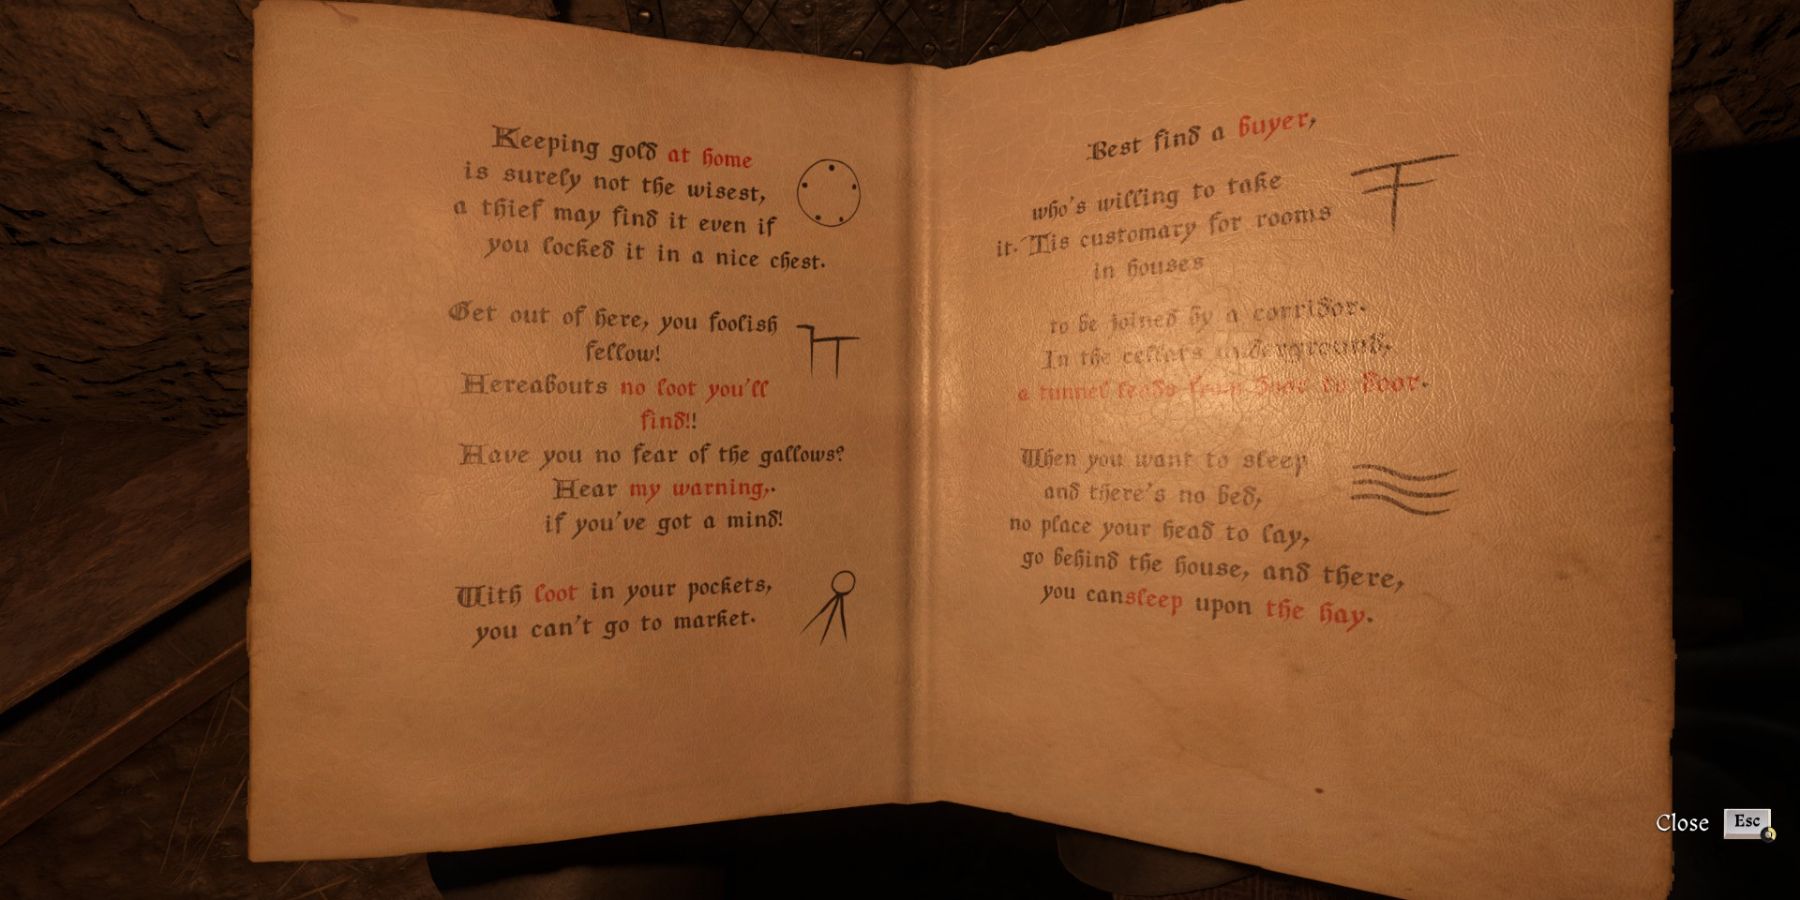 Keeping gold at home
is surely not the wisest,
a thief may find it even if
you locked it in a nice chest.
Get out of here, you foolish
fellow!
Hereabouts no loot you'll
find!!
Have you no fear of the gallows?
Hear my warning,.
if you've got a mind!
With loot in your pockets,
you can't go to market.
Best find a buyer,
who's willing to take
it. 'Tis customary for rooms
in houses
to be joined by a corridor.
In the cellars underground,
a tunnel leads from door to door.
When you want to sleep
and there's no bed,
no place your head to lay,
go behind the house, and there,
you cansleep upon the hay.
Close Esc